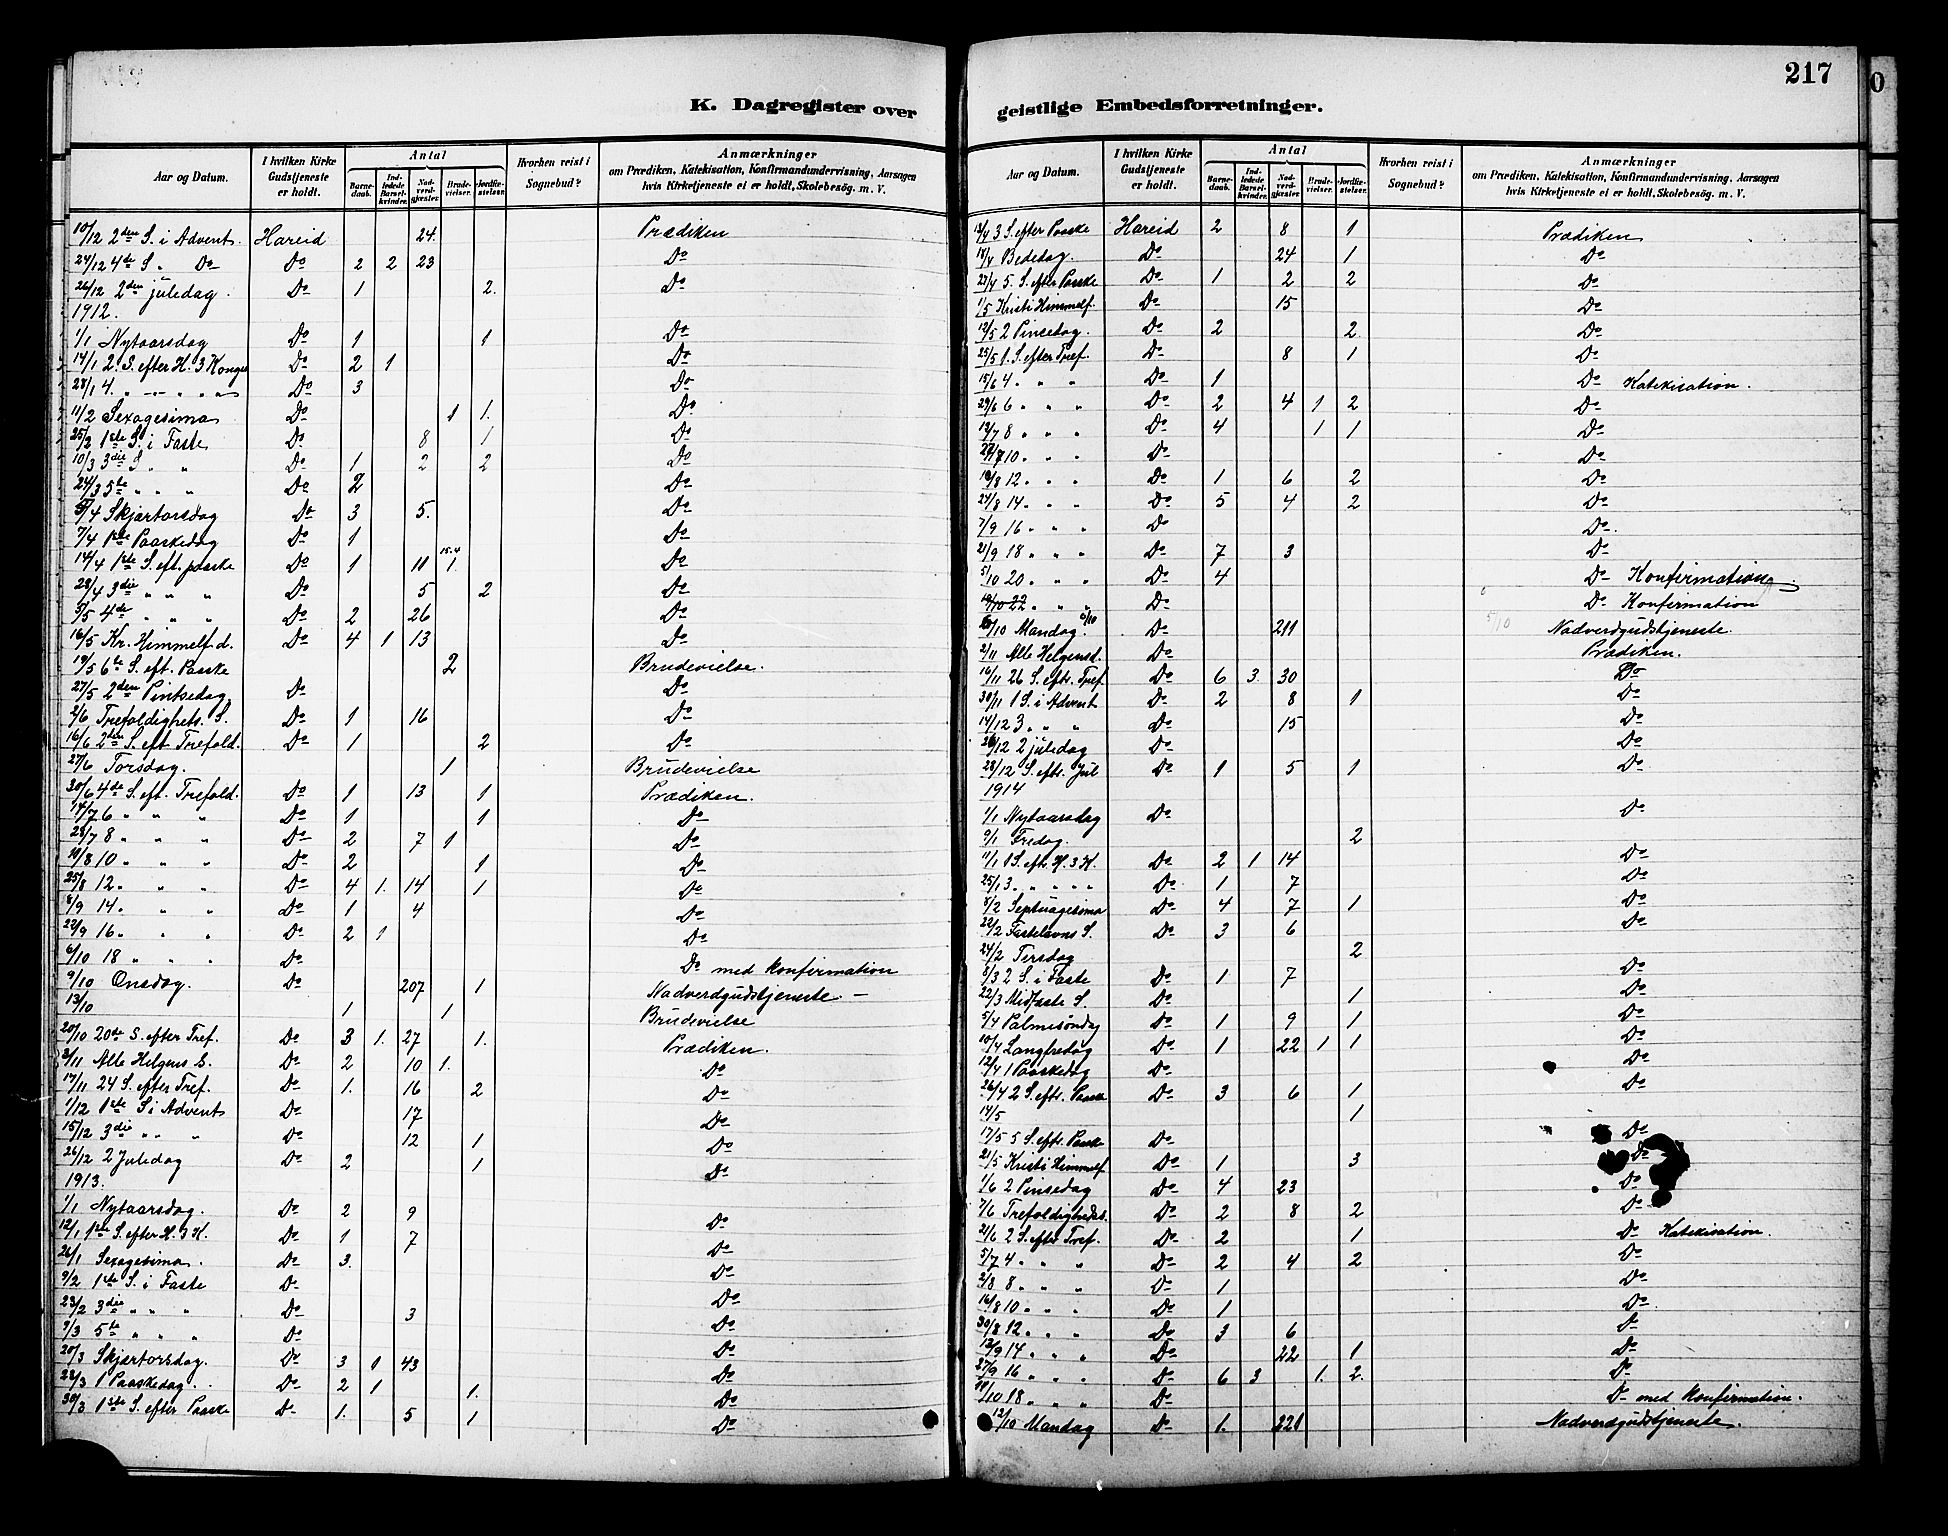 217
K. Dagregister over
Aar og Datum.
I hvilken Kirke Gudstjeneste er holdt.
Antal
Barnedaab.
Indledede Barselkvinder.
Nadverdgjæster.
Brudevielser.
Jordfæstelser.
Hvorhen reist i Sognebud?
Anmærkninger
om Prædiken, Katekisation, Konfirmandundervisning, Aarsagen
hvis Kirketjeneste ei er holdt, Skolebesøg. m. V.
10/12 2den S. i Advent. Hareid 24. Prædiken
24/12 4de S. " Do Do 2 2 23 Do
26/12 2den juledag. Do 1 2. Do
1912.
1/1 Nytaarsdag Do 1 1 Do
14/1 2. S. efter H. 3 Konger Do 2 1 Do
28/1 4. " — " " " Do 3 Do
11/2 Sexagesima Do 1 1. Do
25/2 1ste S. i Faste Do 8 1 Do
10/3 3die S. " " Do 1 2 2 Do
24/3 5te " " " Do 2 Do
4/4 Skjærtorsdag Do 3 5. Do
7/4 1ste Paaskedag Do 1 Do
14/4 1ste S. eft. paaske Do 1 11 15.4 1. Do
28/4 3die " " " Do 5 2 Do
5/5 4de " " " Do 2 26 Do
16/5 Kr. Himmelf. d. Do 4 1 13 Do
19/5 6te S. eft. Paaske 2 Brudevielse.
27/5 2den Pintsedag Do Do
2/6 Trefoldighets. S. Do 1 16 Do
16/6 2den S. eft Trefold. Do 1 2 Do
27/6 Torsdag. 1 Brudevielse
30/6 4de S. eft. Trefold. Do 1 13 1 Prædiken.
14/7 6 " " " Do 1 1 Do
28/7 8 " " " Do 2 7 1 Do
11/8 10 " " " Do 2 1 Do
25/8 12. " " Do 4 1. 14 1 Do
8/9 14. " " Do 1 4 Do
22/9 16 " " " Do 2 1 Do
6/10 18 " " " Do Do med konfirmation
9/10 Onsdag. Do 207 1 Nadverdgudstjeneste —
13/10 1 1 Brudevielse
20/10 20de S. efter Tref. Do 3 1. 27 1. Prædiken.
3/11 Alle Helgens S. Do 2 10 1. Do
17/11 24 S. efter Tref. Do 1. 16 2 Do
1/12 1ste S. i Advent Do 17 Do
15/12 3die " " " Do 12 1 Do
26/12 2 Juledag Do 2 1 Do
1913.
1/1 Nytaarsdag. Do 2 9 Do
12/1 1ste S. efter H. 3 K. Do 1 7 Do
26/1 Sexagesima. Do 3. Do
9/2 1ste S. i Faste Do Do
23/2 3die " " " Do 3 Do
9/3 5te " " " Do Do
20/3 Skjærtorsdag. Do 3 1 43 Do
23/3 1 Paaskedag. Do 2 1 1. Do
30/3 1ste S. efter Paaske Do 1. 5 1 Do
geistlige Embedsforretninger.
Aar og Datum.
I hvilken Kirke Gudstjeneste er holdt.
Antal
Barnedaab.
Indledede Barselkvinder.
Nadverdgjæster.
Brudevielser.
Jordfæstelser.
Hvorhen reist i Sognebud?
Anmærkninger
om Prædiken, Katekisation, Konfirmandundervisning, Aarsagen
hvis Kirketjeneste ei er holdt, Skolebesøg. m. V.
13/4 3 S. efter Paaske Hareid 2 8 1 Prædiken
18/4 Bededag. Do 24 1 Do
27/4 5. S. efter Paaske Do 1 2 2 Do
1/5 Kristi Himmelf. Do 15 Do
12/5 2 Pinsedag. Do 2 2 Do
25/5 1. S. efter Tref. Do 8 1 Do
15/6 4. " " Do 1 Do Katekisation.
29/6 6 " " Do 2 4 1 2 Do
13/7 8 " " Do 4 1 1 Do
27/7 10. " " Do Do
10/8 12 " " Do 1 6 2 Do
24/8 14 " " Do 5 4 2 Do
7/9 16 " " Do Do
21/9 18 " " Do 7 3 Do
5/10 20 " " Do 4 Do Konfirmation
19/10 22 " " Do Do Konfirmation
6/10 Mandag. 6/10 Do 211 5/10 Nadverdgudstjeneste.
2/11 Alle Helgensd. Do Prædiken.
16/11 26 S. eftr. Tref. Do 6 3. 30 Do
30/11 1 S. i Advent Do 2 8 1 Do
14/12 3 " " Do 15 Do
26/12 2 juledag Do Do
28/12 S. eftr. Jul Do 1 5 1 Do
1914
1/1 Nytaarsdag Do Do
9/1 Fredag. 2
11/1 1 S. eftr H. 3 K. Do 2 1 14 Do
25/1 3. " " " " Do 1 7 Do
8/2 Septuagesima Do 4 7 1 Do
22/2 Fastelavns S. Do 3 6 Do
24/2 Tirsdag 2
8/3 2 S. i Faste Do 1 7 Do
22/3 Midfaste S. Do 1 Do
5/4 Palmesøndag Do 1 9 1 Do
10/4 Langfredag Do 1 22 1 1 Do
12/4 1 Paaskedag Do Do
26/4 2 S. eftr. Paaske Do 3 6 1 Do
14/5 1
17/5 5 S. eftr. Paaske Do Do
21/5 Kristi Himmelf. Do 1 3 Do
1/6 2 Pinsedag Do 4 23 Do
7/6 Trefoldighedss. Do 2 8 2 Do
21/6 2 S. efter Tref. Do 2 1 Do Katekisation.
5/7 4 " " Do 2 4 2 Do
2/8 8 " " Do 1 Do
16/8 10 " " Do 1 Do
30/8 12. " " Do 3 6 Do
13/9 14 " " Do 22 1 Do
27/9 16 " " Do 6 3 1. 2. Do
11/10 18 " " Do Do med konfirmation.
12/10 Mandag Do 1. 221 Nadverdgudstjeneste.